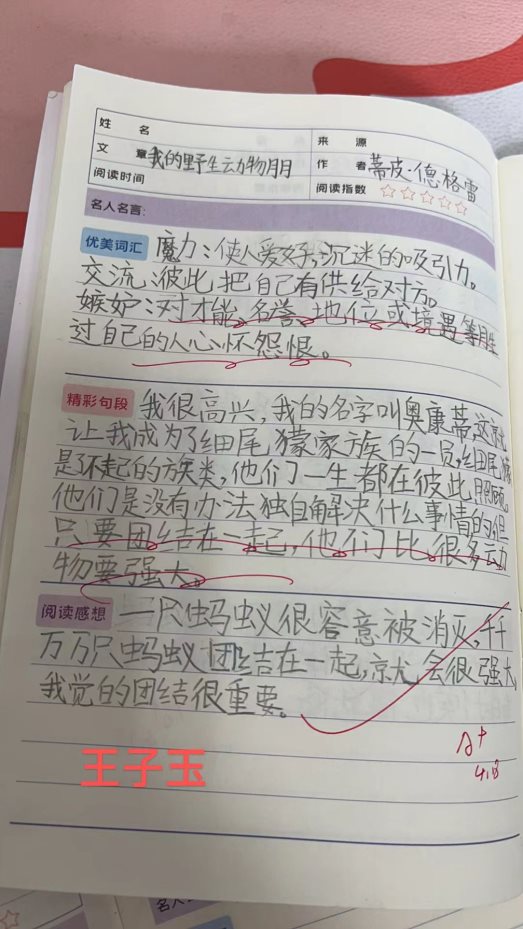 姓 名
来 源
文 章 我的野生动物朋月
作 者 蒂皮·德格雷
阅读时间
阅读指数 ☆☆☆☆☆
名人名言:
优美词汇 魔力:使人爱好,沉迷的吸引力。
交流:彼此把自己有供给对方。
嫉妒:对才能、名誉、地位或境遇等胜
过自己的人心怀怨恨。
精彩句段 我很高兴,我的名字叫奥康蒂,这就
让我成为了细尾獴家族的一员,细尾獴
是了不起的族类,他们一生都在彼此照顾。
他们是没有办法独自解决什么事情的但
只要团结在一起,他们比很多动
物要强大。
阅读感想 一只蚂蚁很容意被消灭,千
万万只蚂蚁团结在一起,就会很强大,
我觉的团结很重要。
A+
4.18
王子玉
名人